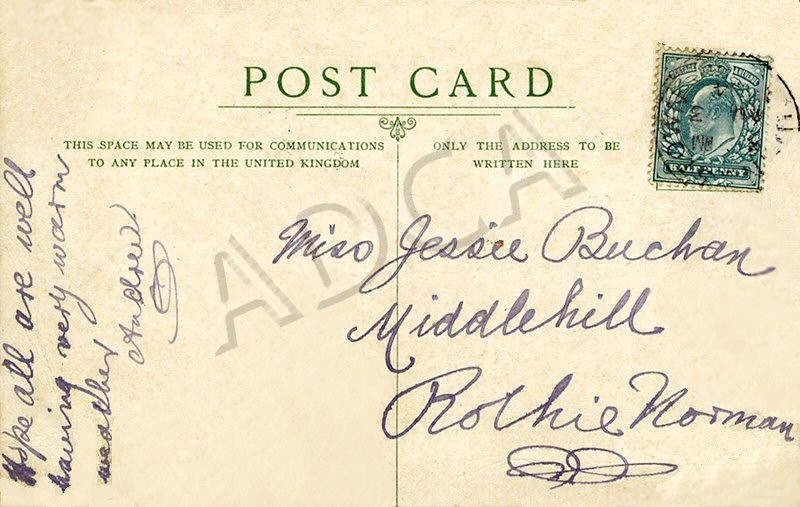 POST CARD
THIS SPACE MAY BE USED FOR COMMUNICATIONS
TO ANY PLACE IN THE UNITED KINGDOM
ONLY THE ADDRESS TO BE
WRITTEN HERE
HALFPENNY
Hope all are well
having very warm
weather
Andrew
Miss Jessie Buchan
Middlehill
Rothie Norman
ADCA